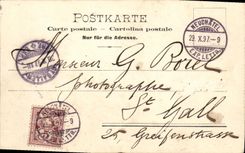 POSTKARTE
Carte postale — Cartolina postale
Nur für die Adresse.
NEUCHÂTEL
29. X. 97. — 9
EXP. LETTR.
Monsieur G. Borel
photographe
St Gall
25, Greifenstrasse